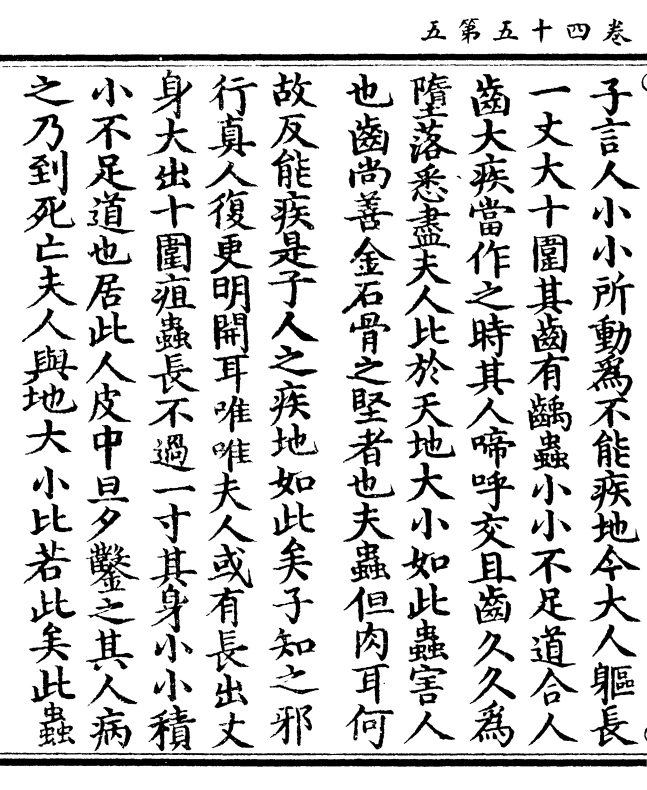 卷四十五第五
子言人小小所動爲不能疾地今大人軀長
一丈大十圍其齒有齲蟲小小不足道合人
齒大疾當作之時其人啼呼交且齒久久爲
墮落悉盡夫人比於天地大小如此蟲害人
也齒尚善金石骨之堅者也夫蟲但肉耳何
故反能疾是子人之疾地如此矣子知之邪
行真人復更明開耳唯唯夫人或有長出丈
身大出十圍疽蟲長不過一寸其身小小積
小不足道也居此人皮中旦夕鑿之其人病
之乃到死亡夫人與地大小比若此矣此蟲